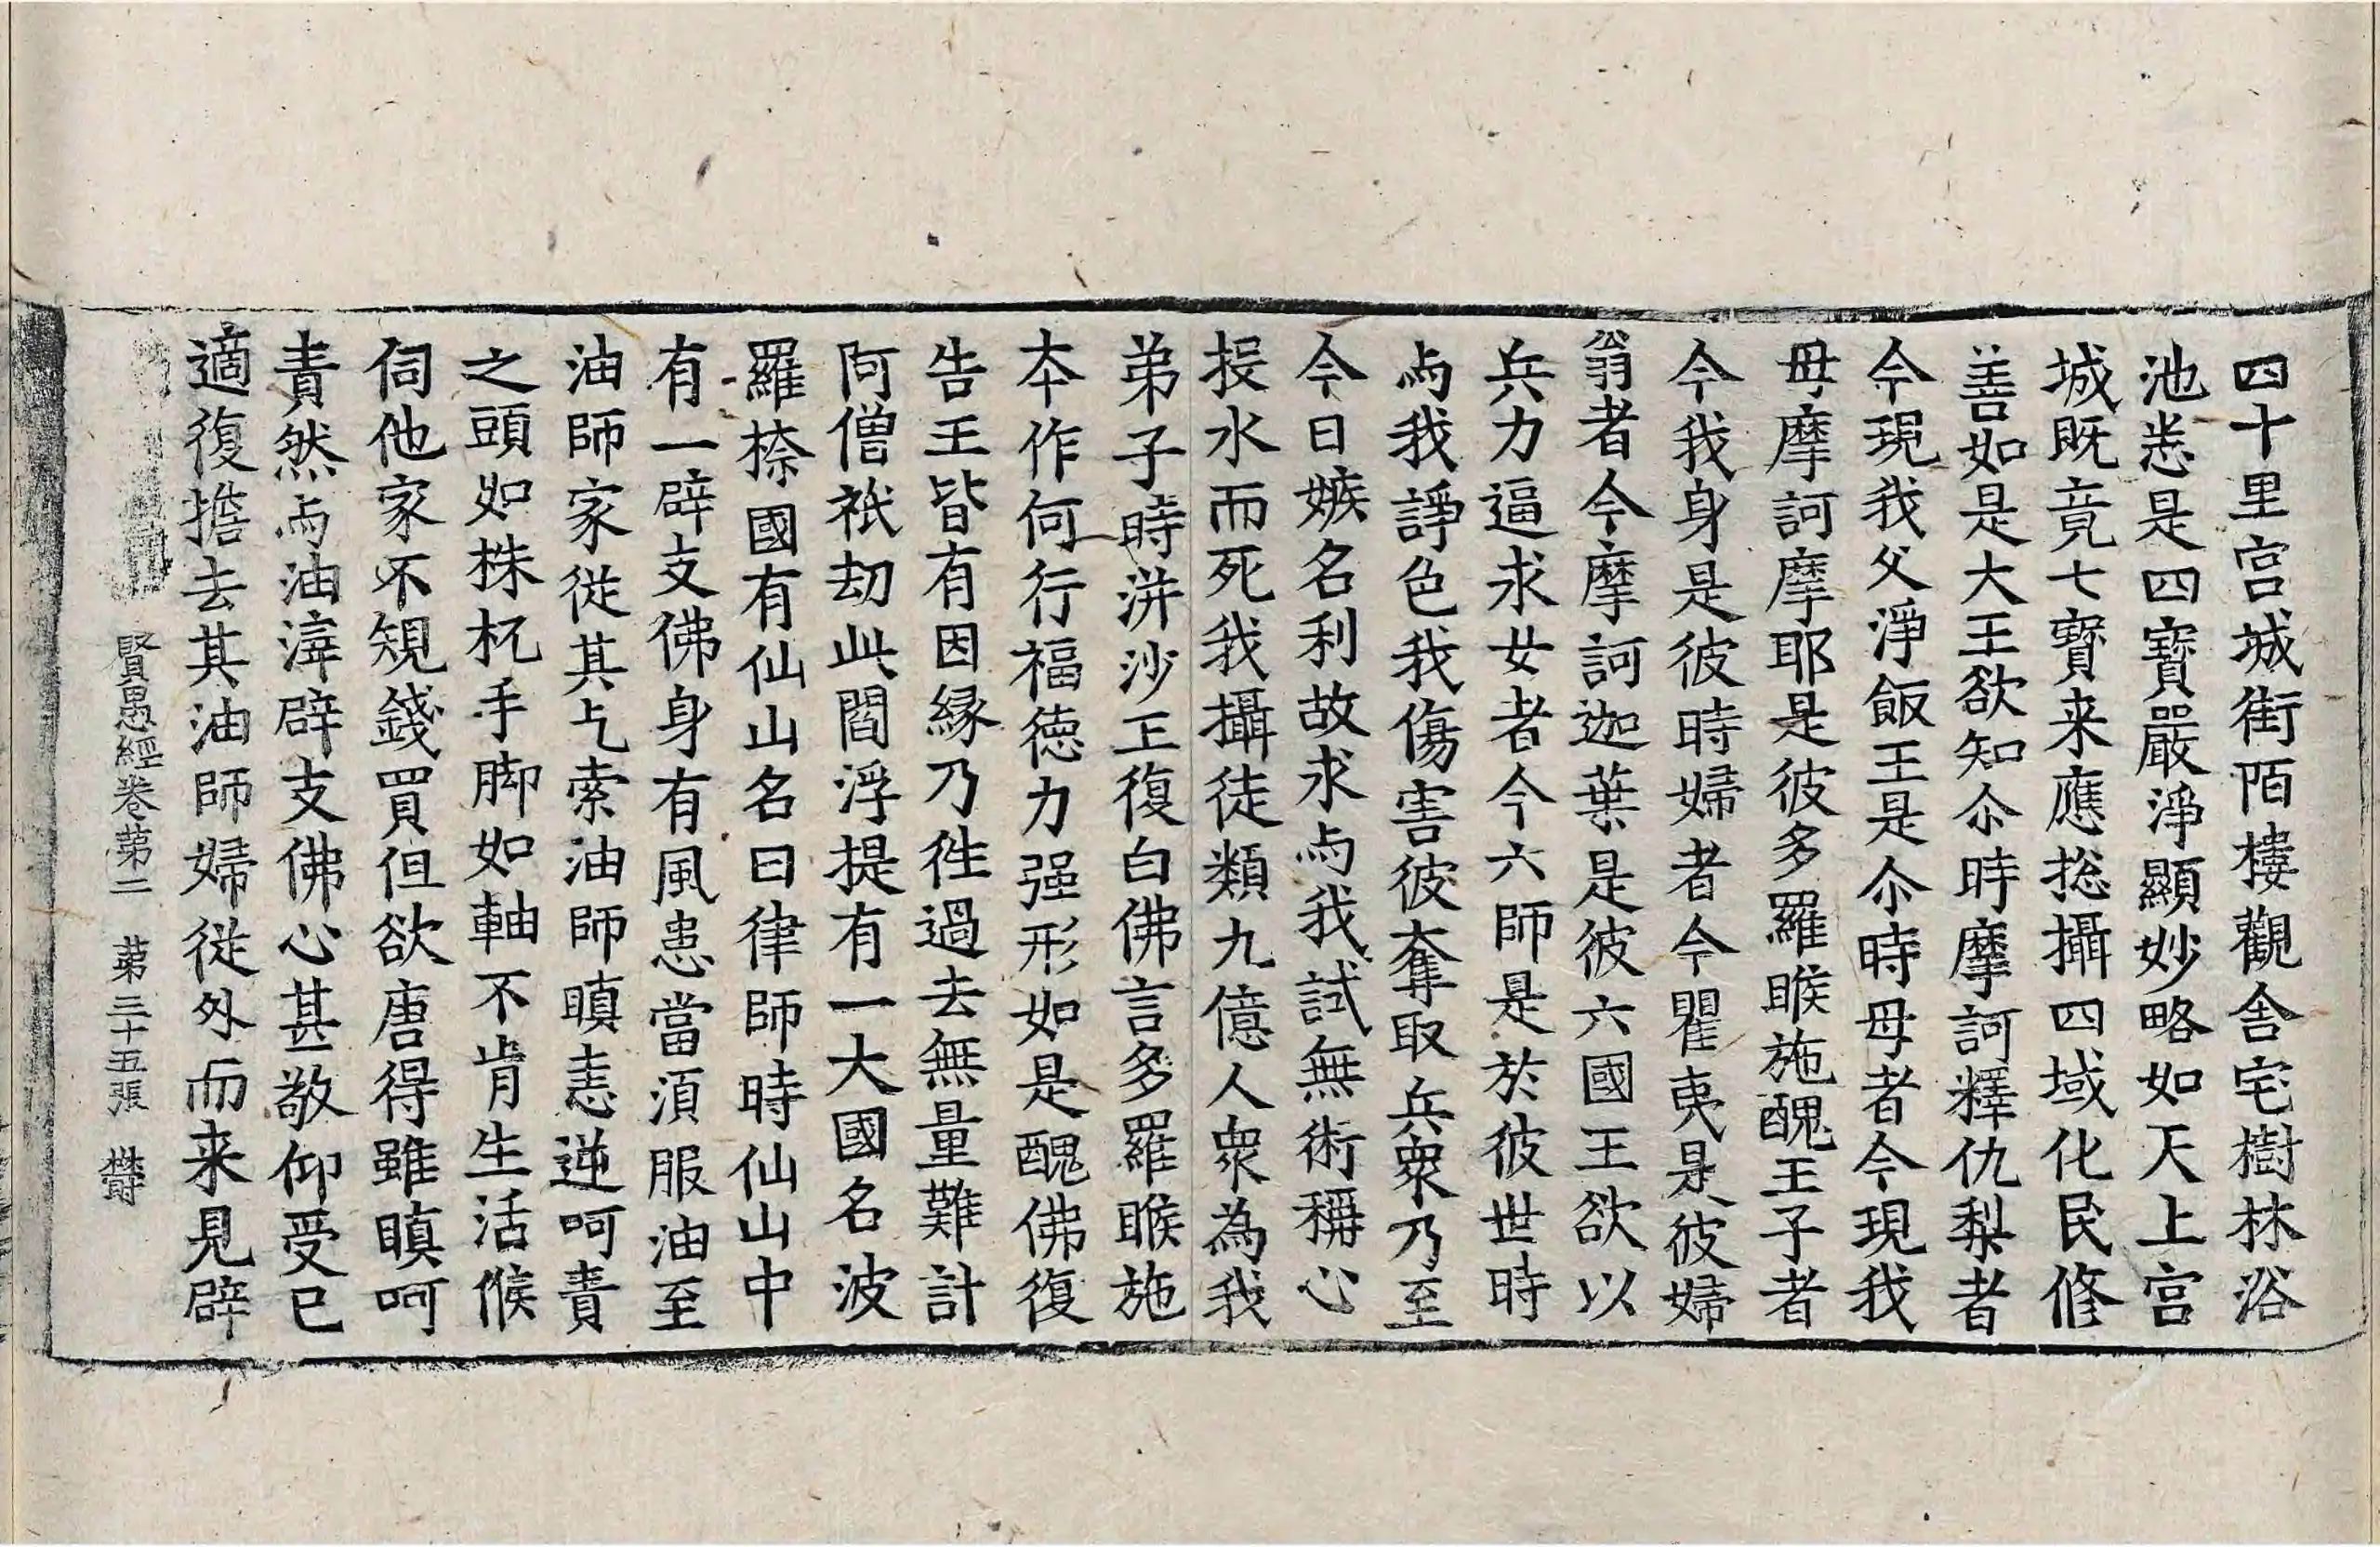 四十里宮城街陌樓觀舍宅樹林浴
池悉是四寶嚴淨顯妙略如天上宮
城既竟七寳来應捴攝四域化民修
善如是大王欲知尒時摩訶釋仇梨者
今現我父淨飯王是尒時母者今現我
母摩訶摩耶是彼多羅睺施醜王子者
今我身是彼時婦者今瞿夷是彼婦
翁者今摩訶迦葉是彼六國王欲以
兵力逼求女者今六師是於彼世時
与我諍色我傷害彼奪取兵衆乃至
今日嫉名利故求与我試無術稱心
投水而死我攝徒類九億人衆為我
弟子時洴沙王復白佛言多羅睺施
本作何行福德力强形如是醜佛復
告王皆有因緣乃徃過去無量難計
阿僧祇劫此閻浮提有一大國名波
羅㮈國有仙山名曰律師時仙山中
有一辟支佛身有風患當須服油至
油師家從其乞索油師瞋恚逆呵責
之頭如株杌手脚如軸不肯生活候
伺他家不規錢買但欲唐得雖瞋呵
責然与油滓辟支佛心甚敬仰受已
適復擔去其油師婦從外而来見辟
賢愚經卷第二　第三十五張　欝